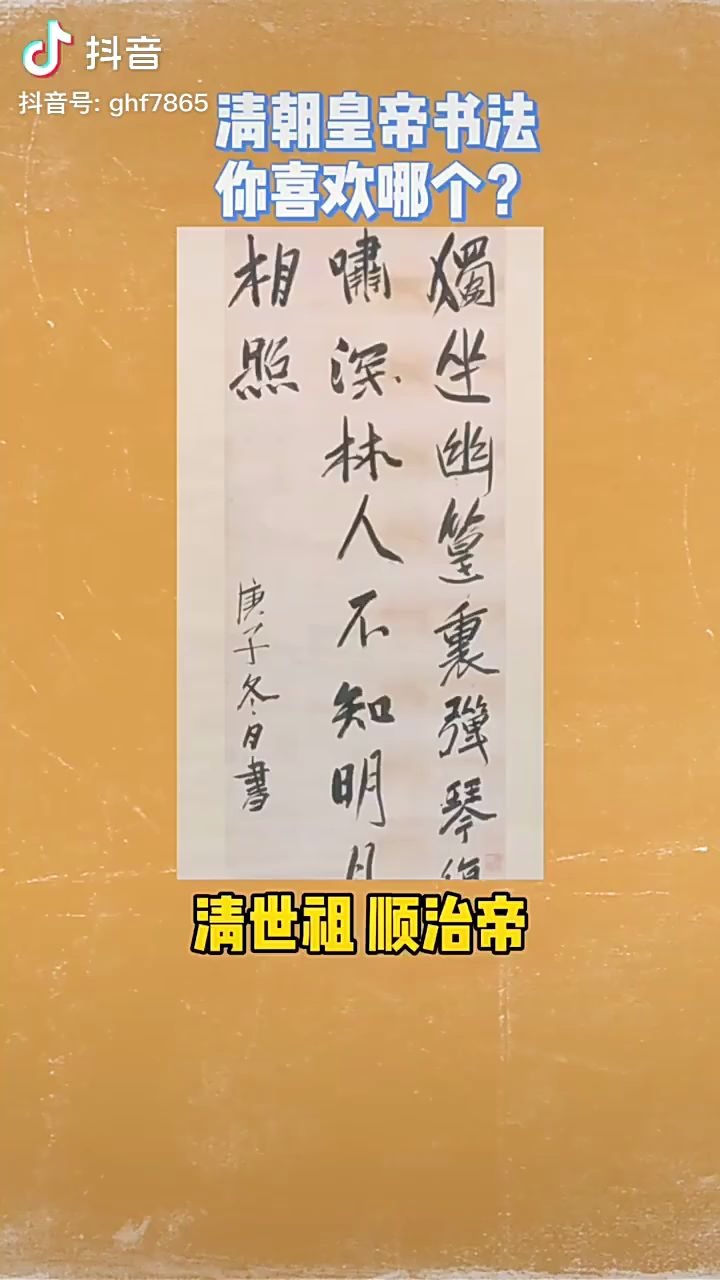 抖音
抖音号: ghf7865
清朝皇帝书法
你喜欢哪个?
獨坐幽篁裏弹琴復
嘯深林人不知明月
相照
庚子冬日書
清世祖 顺治帝